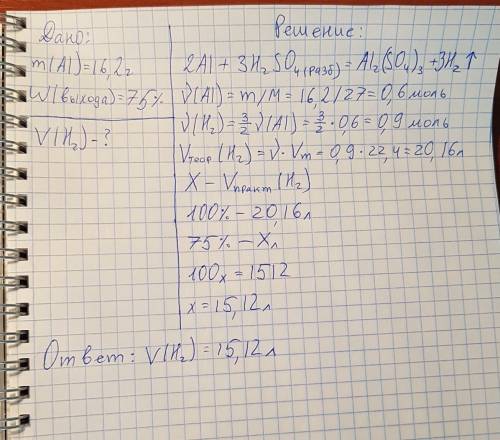 Дано:
m(Al)=16,2г
W(выхода)=75%
V(H₂)-?
Решение:
2Al + 3H₂SO₄(разб) = Al₂(SO₄)₃ + 3H₂↑
ν(Al) = m/M = 16,2/27 = 0,6 моль
ν(H₂) = 3/2 ν(Al) = 3/2 · 0,6 = 0,9 моль
Vтеор(H₂) = ν · Vm = 0,9 · 22,4 = 20,16л
X - Vпракт(H₂)
100% - 20,16л
75% - Xл
100x = 1512
x = 15,12л
Ответ: V(H₂) = 15,12л